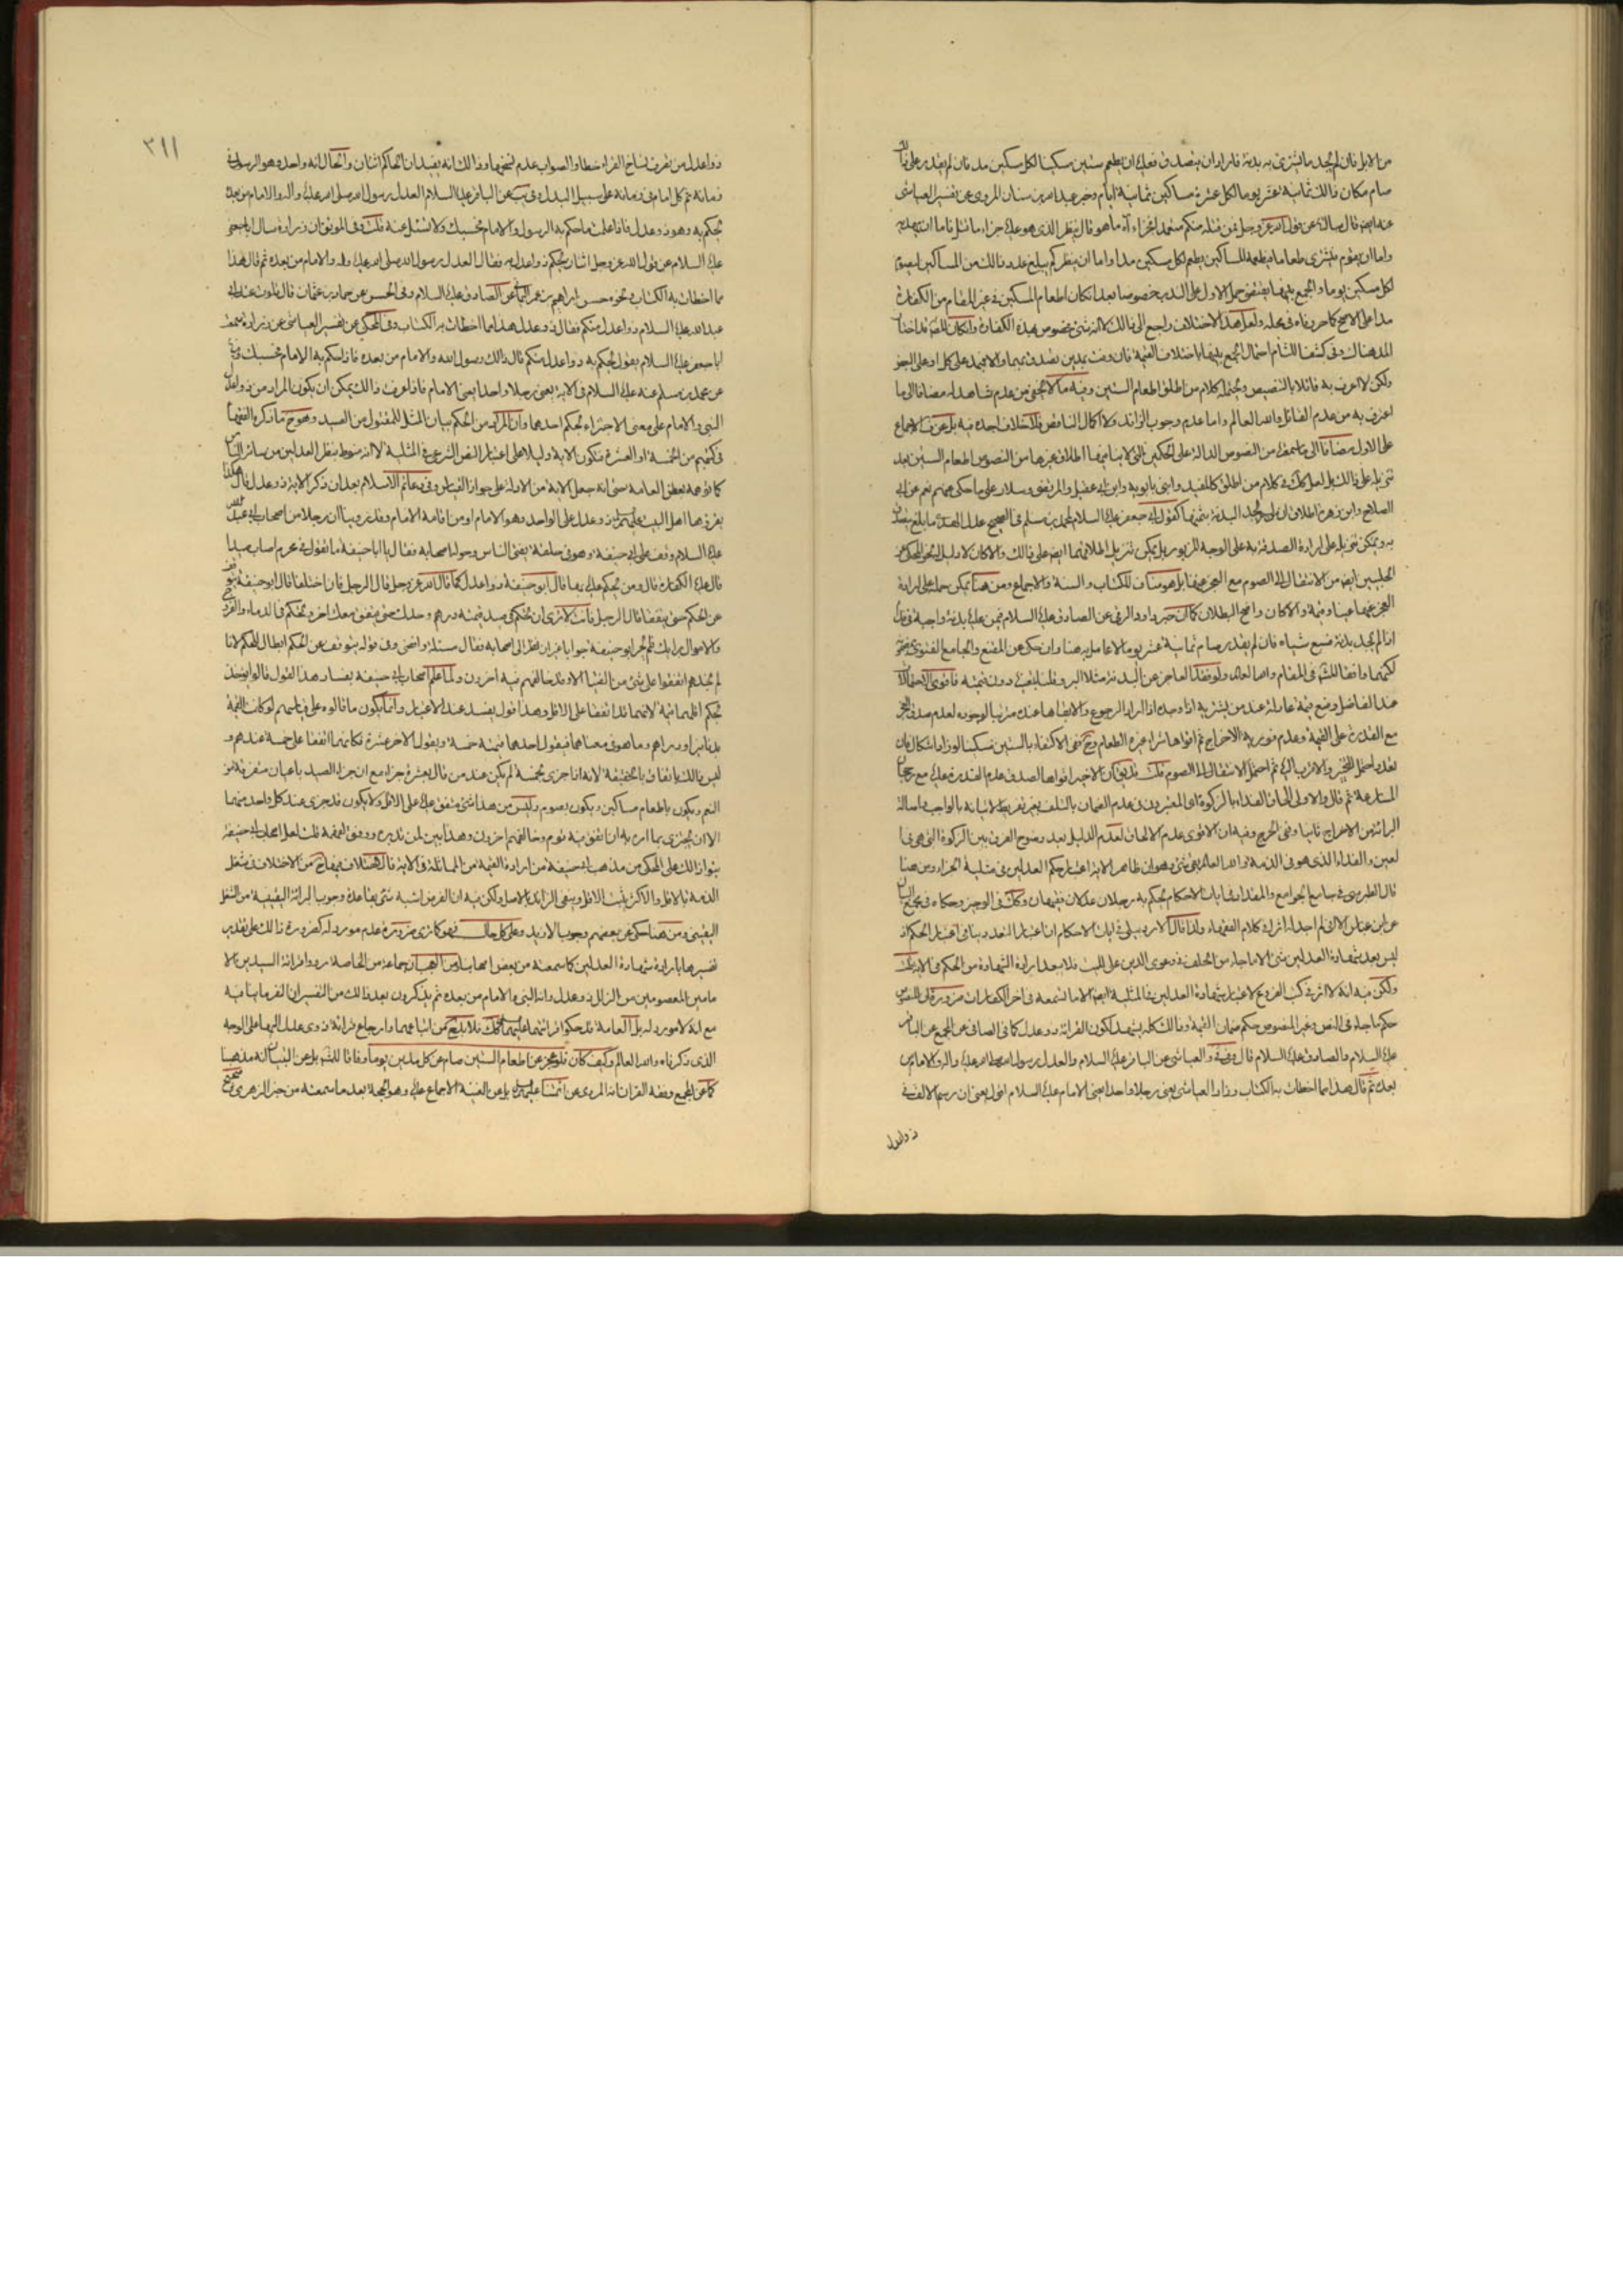 من الابل فان لم يجد ما يشترى به بدنة فاراد ان يتصدق فعليه ان يطعم ستين مسكينا لكل مسكين مد فان لم يقدر على ذلك
صام مكان ذلك ثمانية عشر يوما لكل عشرة مساكين ثلاثة ايام وخبر عبد الله بن سنان المروى عن تفسير العياشى
عنه ايضا قال سالته عن قول الله عز وجل فمن قتله منكم متعمدا فجزاء آه ما هو قال ينظر الذى هو عليه جزاء ما قتل فاما ان يهديه
واما ان يقوم فيشترى به طعاما فيطعمه المساكين يطعم لكل مسكين مدا واما ان ينظر كم يبلغ عدد ذلك من المساكين فيصوم
لكل مسكين يوما والجمع بينهما يقتضى حمل الاول على الندب خصوصا بعد ان كان اطعام المسكين فى غير المقام من الكفارة
مدا على الاصح كما حررناه فى محله ولعل هذا الاختلاف راجع الى ذلك لا انه شىء مخصوص بهذه الكفارة وان كان
المد هناك وفى كشف اللثام احتمال الجمع بينهما باختلاف القيمة فان وفت بمدين تصدق بهما والا فبمد على كل او على العجز
ولكن لا اعرف به قائلا بالتنصيص ويحتمله كلام من اطلق اطعام الستين وفيه ما لا يخفى من عدم شاهد له مضافا الى ما
اعترف به من عدم القائل والله العالم واما عدم وجوب الزائد ولا اكمال الناقص فلا خلاف اجده فيه بل عن الاجماع
على الاول مضافا الى ما سمعت من النصوص الدالة على الحكمين التى لا ينافيها اطلاق غيرها من النصوص اطعام الستين بعد
تنزيله على ذلك بل لعل كذلك فى كلام من اطلق كالمفيد وابنى بابويه وابن ابى عقيل والمرتضى وسلار على ما حكى عنهم نعم عن ابى
الصلاح وابن زهرة اطلاق ان لم يجد البدنة بقيمتها كقول ابى جعفر عليه السلام لمحمد بن مسلم فى الصحيح عدل الهدى ما بلغ يتصدق
به ويمكن تنزيله على ارادة الصدقة به على الوجه المزبور بل يمكن تنزيل اطلاقهما ايضا على ذلك والا كان لا دليل
الحلبيين ايضا من الانتقال الى الصوم مع العجز عنها بل هو مناف للكتاب والسنة والاجماع ومن هنا يمكن حمله على ارادة
العجز عنها عينا وقيمة والا كان واضح البطلان كما ان خبر داود الرقى عن الصادق عليه السلام فيمن عليه بدنة واجبة فى فداء
اذا لم يجد بدنة فسبع شياه فان لم يقدر صام ثمانية عشر يوما لا عامل به هنا وان حكى عن المقنع والجامع الفتوى
لكنهما وافقا المش فى المقام والله العالم ولو فقد العاجز عن البدنة مثلا البر
عند الفاضل وضع قيمة عادلة عند من يشتريه اذا وجده اذا اراد الرجوع والا ابقاها عنده مرتبا لوجوده لعدم صدق العجز
مع القدرة على القيمة وعدم فورية الاخراج ثم اقواها شراء غيره الطعام وح ففى الاكتفاء بالستين مسكينا لو زاد اشكال فان
تعدد احتمل التخيير والاقرب اليه ثم احتمل الانتقال الى الصوم قلت قد يق ان الاخير اقواها لصدق عدم القدرة عليه مع رجحان
المسارعة ثم قال والاولى الحاق الفداء بالزكوة اى المعين فى عدم الضمان بالتلف بغير تفريط لاتيانه بالواجب واصالة
البرائة من الاخراج ثانيا ونفى الحرج وفيه ان الاقوى عدم الالحاق لعدم الدليل بعد وضوح الفرق بين الزكوة التى هى فى
العين والفداء الذى هو فى الذمة والله العالم بقى شىء وهو ان ظاهر الاية اعتبار حكم العدلين فى مثلية الجزاء ومن هنا
قال الطبرسى فى جامع الجوامع والمقداد فى ايات الاحكام يحكم به رجلان عدلان فقيهان وكذلك فى الوجيز وحكاه فى مجمع البيان
عن ابن عباس الا انى لم اجد له اثرا فى كلام الفقهاء ولذا قال الاردبيلى فى ايات الاحكام ان اعتبار التعدد ينافى اعتبار الحكم اذ
ليس بعد شهادة العدلين شىء الا ما جاء من الحلف فى دعوى الدين على الميت فلا بعد ارادة الشهادة من الحكم فى الاية قلت
ولكن فيه انه لا اثر فى كتب الفروع لاعتبار شهادة العدلين فى المثلية ايضا الا ما تسمعه فى اخر الكفارات ضرورة ان المنصوص
حكم ما جاء فى النص وغير المنصوص حكم ضمان القيمة وذلك كله يشهد لكون القرائة ذو عدل كما فى الصافى عن المجمع عن الباقر
عليه السلام والصادق عليه السلام قال وفى فى والعياشى عن الباقر عليه السلام والعدل رسول الله صلى الله عليه واله والامام من
بعده ثم قال هذا مما اخطات به الكتاب وزاد العياشى يعنى رجلا واحدا يعنى الامام عليه السلام اقول يعنى ان رسم الالف فى
ذوا عدل
٣١١
ذوا عدل من تصرف نساخ القران خطا والصواب عدم نسخها وذلك انه يفيد ان الحاكم اثنان والحال انه واحد وهو الرسول فى
زمانه ثم كل امام فى زمانه على سبيل البدل وفى يب عن الباقر عليه السلام العدل رسول الله صلى الله عليه واله والامام من بعده
يحكم به وهو ذو عدل فاذا علمت ما حكم به الرسول والامام فحسبك ولا تسئل عنه قلت وفى الموثق ان زرارة سال ابا جعفر
عليه السلام عن قول الله عز وجل اثنان يحكم به ذوا عدل منكم فقال العدل رسول الله صلى الله عليه واله والامام من بعده ثم قال هذا
مما اخطات به الكتاب ونحوه حسن ابراهيم بن عمر اليمانى عن الصادق عليه السلام وفى الحسن عن حماد بن عثمان قال تلوت عند ابى
عبد الله عليه السلام ذوا عدل منكم فقال ذو عدل هذا مما اخطات به الكتاب وفى المحكى عن تفسير العياشى عن زرارة سمعت
ابا جعفر عليه السلام يقول يحكم به ذوا عدل منكم قال ذلك رسول الله والامام من بعده فاذا حكم به الامام فحسبك وفيه
عن محمد بن مسلم عنه عليه السلام فى الاية يعنى رجلا واحدا يعنى الامام فاذا عرفت ذلك يمكن ان يكون المراد من ذوا عدل
النبى والامام على معنى الاجتزاء بحكم احدهما وان المراد من الحكم بيان المثل للمقتول من الصيد وهو ح ما ذكره الفقهاء
فى كتبهم من الخمسة او العشرة فتكون الاية دليلا على اعتبار النص الشرعى فى المثلية لا انه منوط بنظر العدلين من سائر الناس
كما توهمه بعض العامة حتى انه جعل الاية من الادلة على جواز القياس وفى دعائم الاسلام بعد ان ذكر الاية ذو عدل قال هكذا
يقرؤها اهل البيت عليهم السلام ذو عدل على الواحد وهو الامام او من اقامه الامام وقد روينا ان رجلا من اصحاب ابى عبد الله
عليه السلام وقف على ابى حنيفة وهو فى حلقة يفتى الناس وحوله اصحابه فقال يا ابا حنيفة ما تقول فى محرم اصاب صيدا
قال عليه الكفارة قال ومن يحكم عليه بها قال ابو حنيفة ذوا عدل كما قال الله عز وجل قال الرجل فان اختلفا قال ابو حنيفة يتوقف
عن الحكم حتى يتفقا قال الرجل فانت لا ترى ان تحكم فى صيد قيمته درهم وحدك حتى يتفق معك اخر وتحكم فى الدماء والفروج
والاموال برايك فلم يحر ابو حنيفة جوابا غير ان نظر الى اصحابه فقال مسئلة رافضى وفى قوله يتوقف عن الحكم ابطال للحكم لانا
لم نجدهم اتفقوا على شىء من الفتيا الا وقد خالفهم فيه اخرون ولما علم اصحاب ابى حنيفة بفساد هذا القول قالوا يؤخذ
بحكم اقلهما قيمة لانهما قد اتفقا على الاقل وهذا قول يفسد عند الاعتبار وانما يكون ما قالوه على قياسهم لو كانت القيمة
بدنانير او دراهم وما هو فى معناهما فيقول احدهما قيمته خمسة ويقول الاخر عشرة فكانهما اتفقا على خمسة عندهم و
ليس ذلك باتفاق بالحقيقة لانه اذا جزى بخمسة لم يكن عند من قال بعشرة جزاء مع ان جزاء الصيد باعيان متفرقة من
النعم ويكون باطعام مساكين ويكون بصوم وليس من هذا شىء متفق عليه على الاقل ولا يكون قد جزى عند كل واحد منهما
الا ان يجزى بما امر به ان اتفق فيه قوم وخالفهم اخرون وهذا بين لمن تدبره ووفق لفهمه قلت لعل اصحاب ابى حنيفة
بنوا ذلك على المحكى من مذهب ابى حنيفة من ارادة القيمة من المماثلة فى الاية فالاختلاف فيها ح من الاختلاف فى شغل
الذمة بالاقل والاكثر يثبت الاقل وينفى الزائد بالاصل ولكن فيه ان الفرض اشبه شىء بقاعدة وجوب البرائة اليقينية من الشغل
اليقينى ومن هنا حكى عن بعضهم وجوب الازيد وعلى كل حال فهو كما ترى ضرورة عدم مورد له كضرورة ذلك على تقدير
تفسيرها بارادة شهادة العدلين كما سمعته من بعض اصحابنا ومن الهيان جماعة من الخاصة ردوا قرائة السيدين الا
مامين المعصومين من الزلل ذو عدل وانه النبى والامام من بعده ثم يذكرون بعد ذلك من التفسير ان لقرمابنا به
مع انه لا مورد له بل العامة قد حكوا قرائتهما عليهما السلام كذلك فلا يليق من اتباعهما وارجاع قرائة ذوى عدل اليها على الوجه
الذى ذكرناه والله العالم وكيف كان فلو عجز عن اطعام الستين صام عن كل مدين يوما وفاقا للمش بل عن التبيان انه مذهبنا
كما عن المجمع وفقه القران انه المروى عن ائمتنا عليهم السلام بل عن الغنية الاجماع عليه وهو الحجة بعد ما سمعته من خبر الزهرى وصحيح